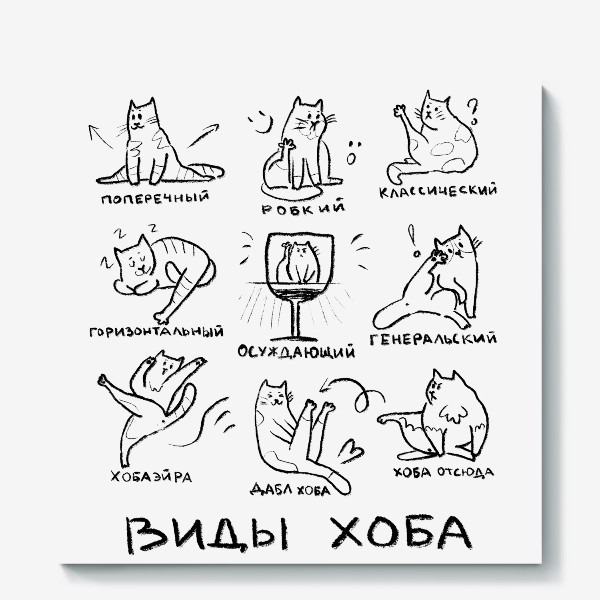 ПОПЕРЕЧНЫЙ
РОБКИЙ
КЛАССИЧЕСКИЙ
?
Z Z Z
!
ГОРИЗОНТАЛЬНЫЙ
ОСУЖДАЮЩИЙ
ГЕНЕРАЛЬСКИЙ
ХОБАЭЙРА
ДАБЛ ХОБА
ХОБА ОТСЮДА
ВИДЫ ХОБА